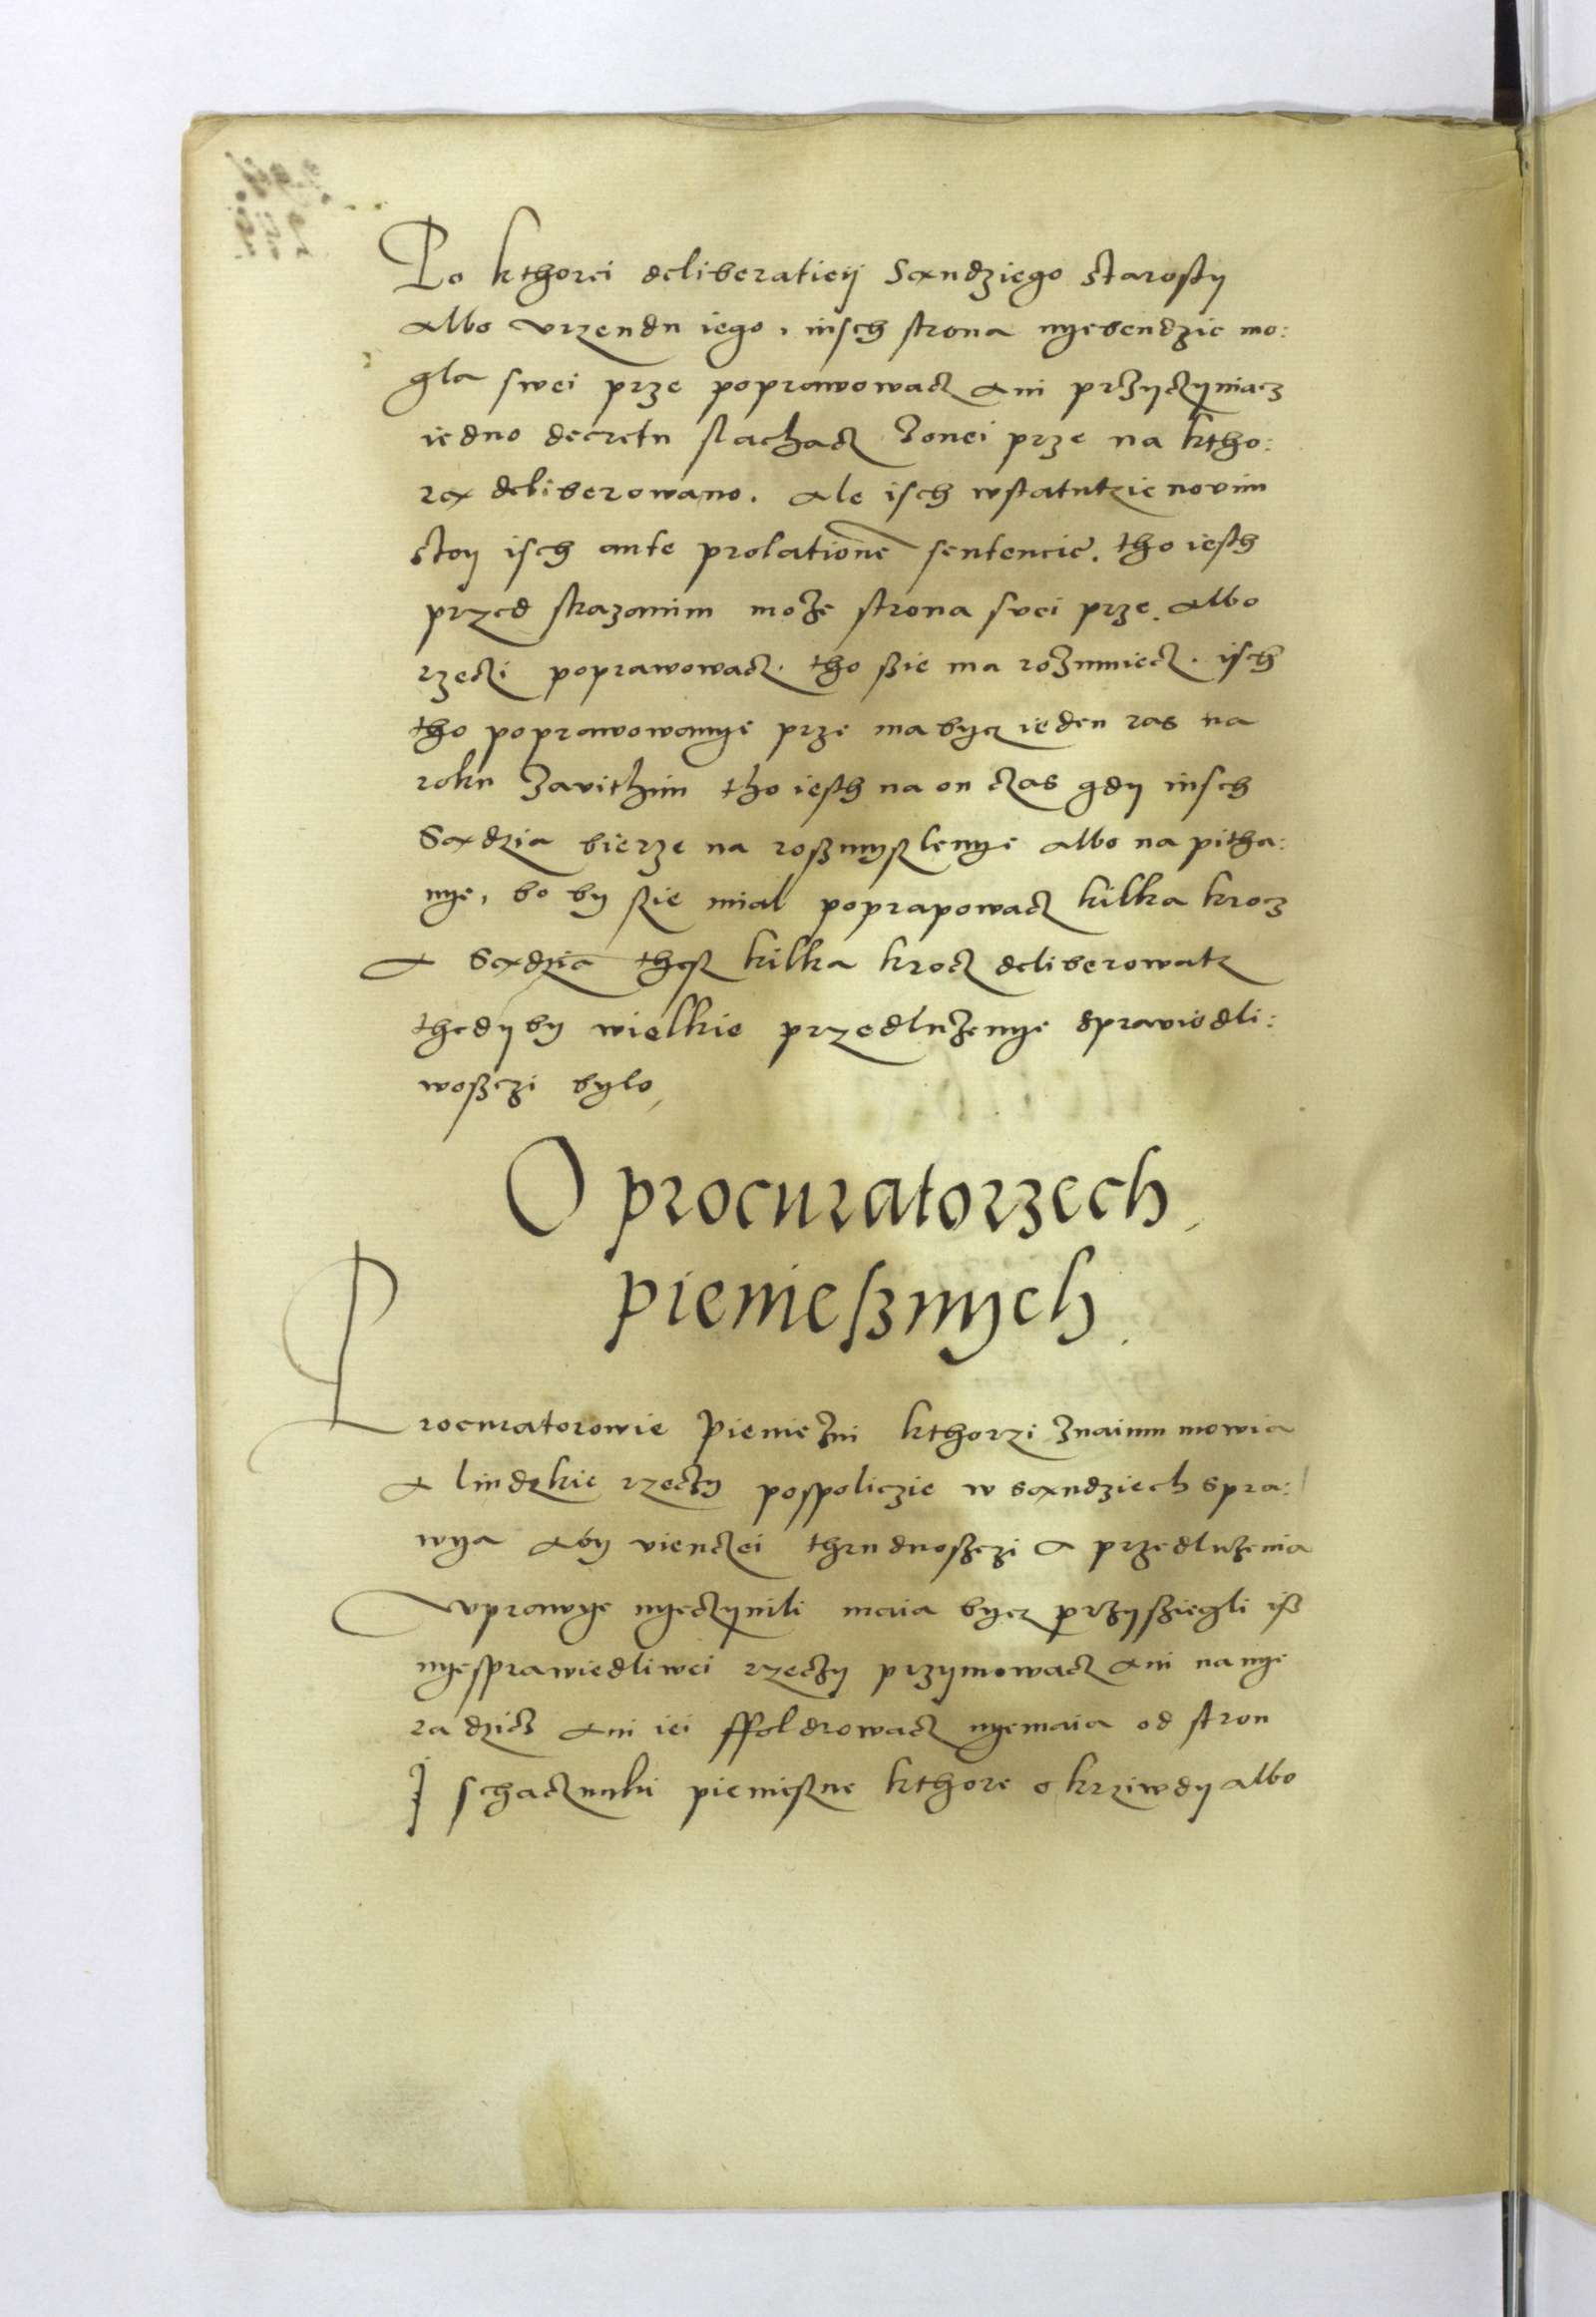 Po kthorei deliberatieij Sandziego starosty
albo vrzendu iego, iusch strona nyebendzie mo:
gla swei prze poprawowacz ani przyczyniacz
iedno decretu sluchacz zonei prze na ktho:
ra deliberowano. ale isch wstatutzie novim
stoij isch ante prolatione sentencie. tho iesth
przed skazanim może strona svei prze. albo
rzeczi poprawowacz. tho ßie ma rozumiecz. isch
tho poprawowanye prze ma bycz ieden ras na
roku zavithim tho iesth na on czas gdy iusch
Sadzia bierze na roßmyßlenye albo na pitha:
nye, bo by ßie mial poprapowacz kilka krocz
a Sadzia theß kilka krocz deliberowatz
thedy by wielkie przedluzenye spraviedli:
woßczi bylo,
O procuratorzech
pienießnych
Procuratorowie pieniezni kthorzi znaimu mowia
a liudzkie rzeczy pospoliczie w sandziech spra:
wya aby vienczei thrudnoßczi a przedluzenia
vprawye nyeczynili maia bycz przyßiegli iß
nyesprawiedliwei rzeczy przymowacz ani nanye
radzicz ani iei ffoldrowacz nyemaia od stron
J schaczunki pienießne kthore o krziwdy albo